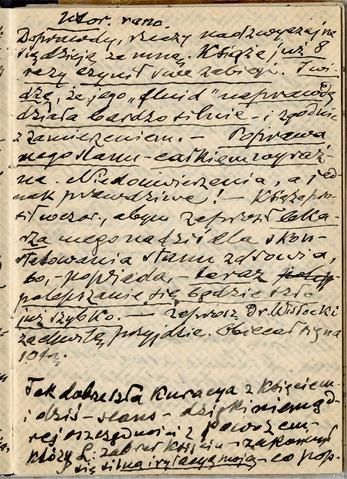 Wtor. rano.
Doprawdy, rzeczy nadzwyczajne
się dzieją ze mną. Książę już 8
razy czynił swe zabiegi. I wi-
dzę, że jego „fluid" naprawdę
działa bardzo silnie - i zgodnie
z zamierzeniem. - Poprawa
mego stanu - całkiem wyraź-
na. Niedowierzenia, a jed-
nak prawdziwe! - Książę pro-
sił wczor., abym zaprosił leka-
rza mego na dziś dla skon-
statowania stanu zdrowia,
bo, - powiada, - teraz
polepszanie się będzie szło
już szybko. - zaprosz. Dr. Wisłocki
za chwilę przyjdzie. Obiecał się na
10tą.
Tak dobrze szła kuracya z Księciem
i dziś - seans - dzięki
rej oszczędności z powozem,
który L. zabrał Księciu - zakomył
się silną irytacyą moją - co pop-